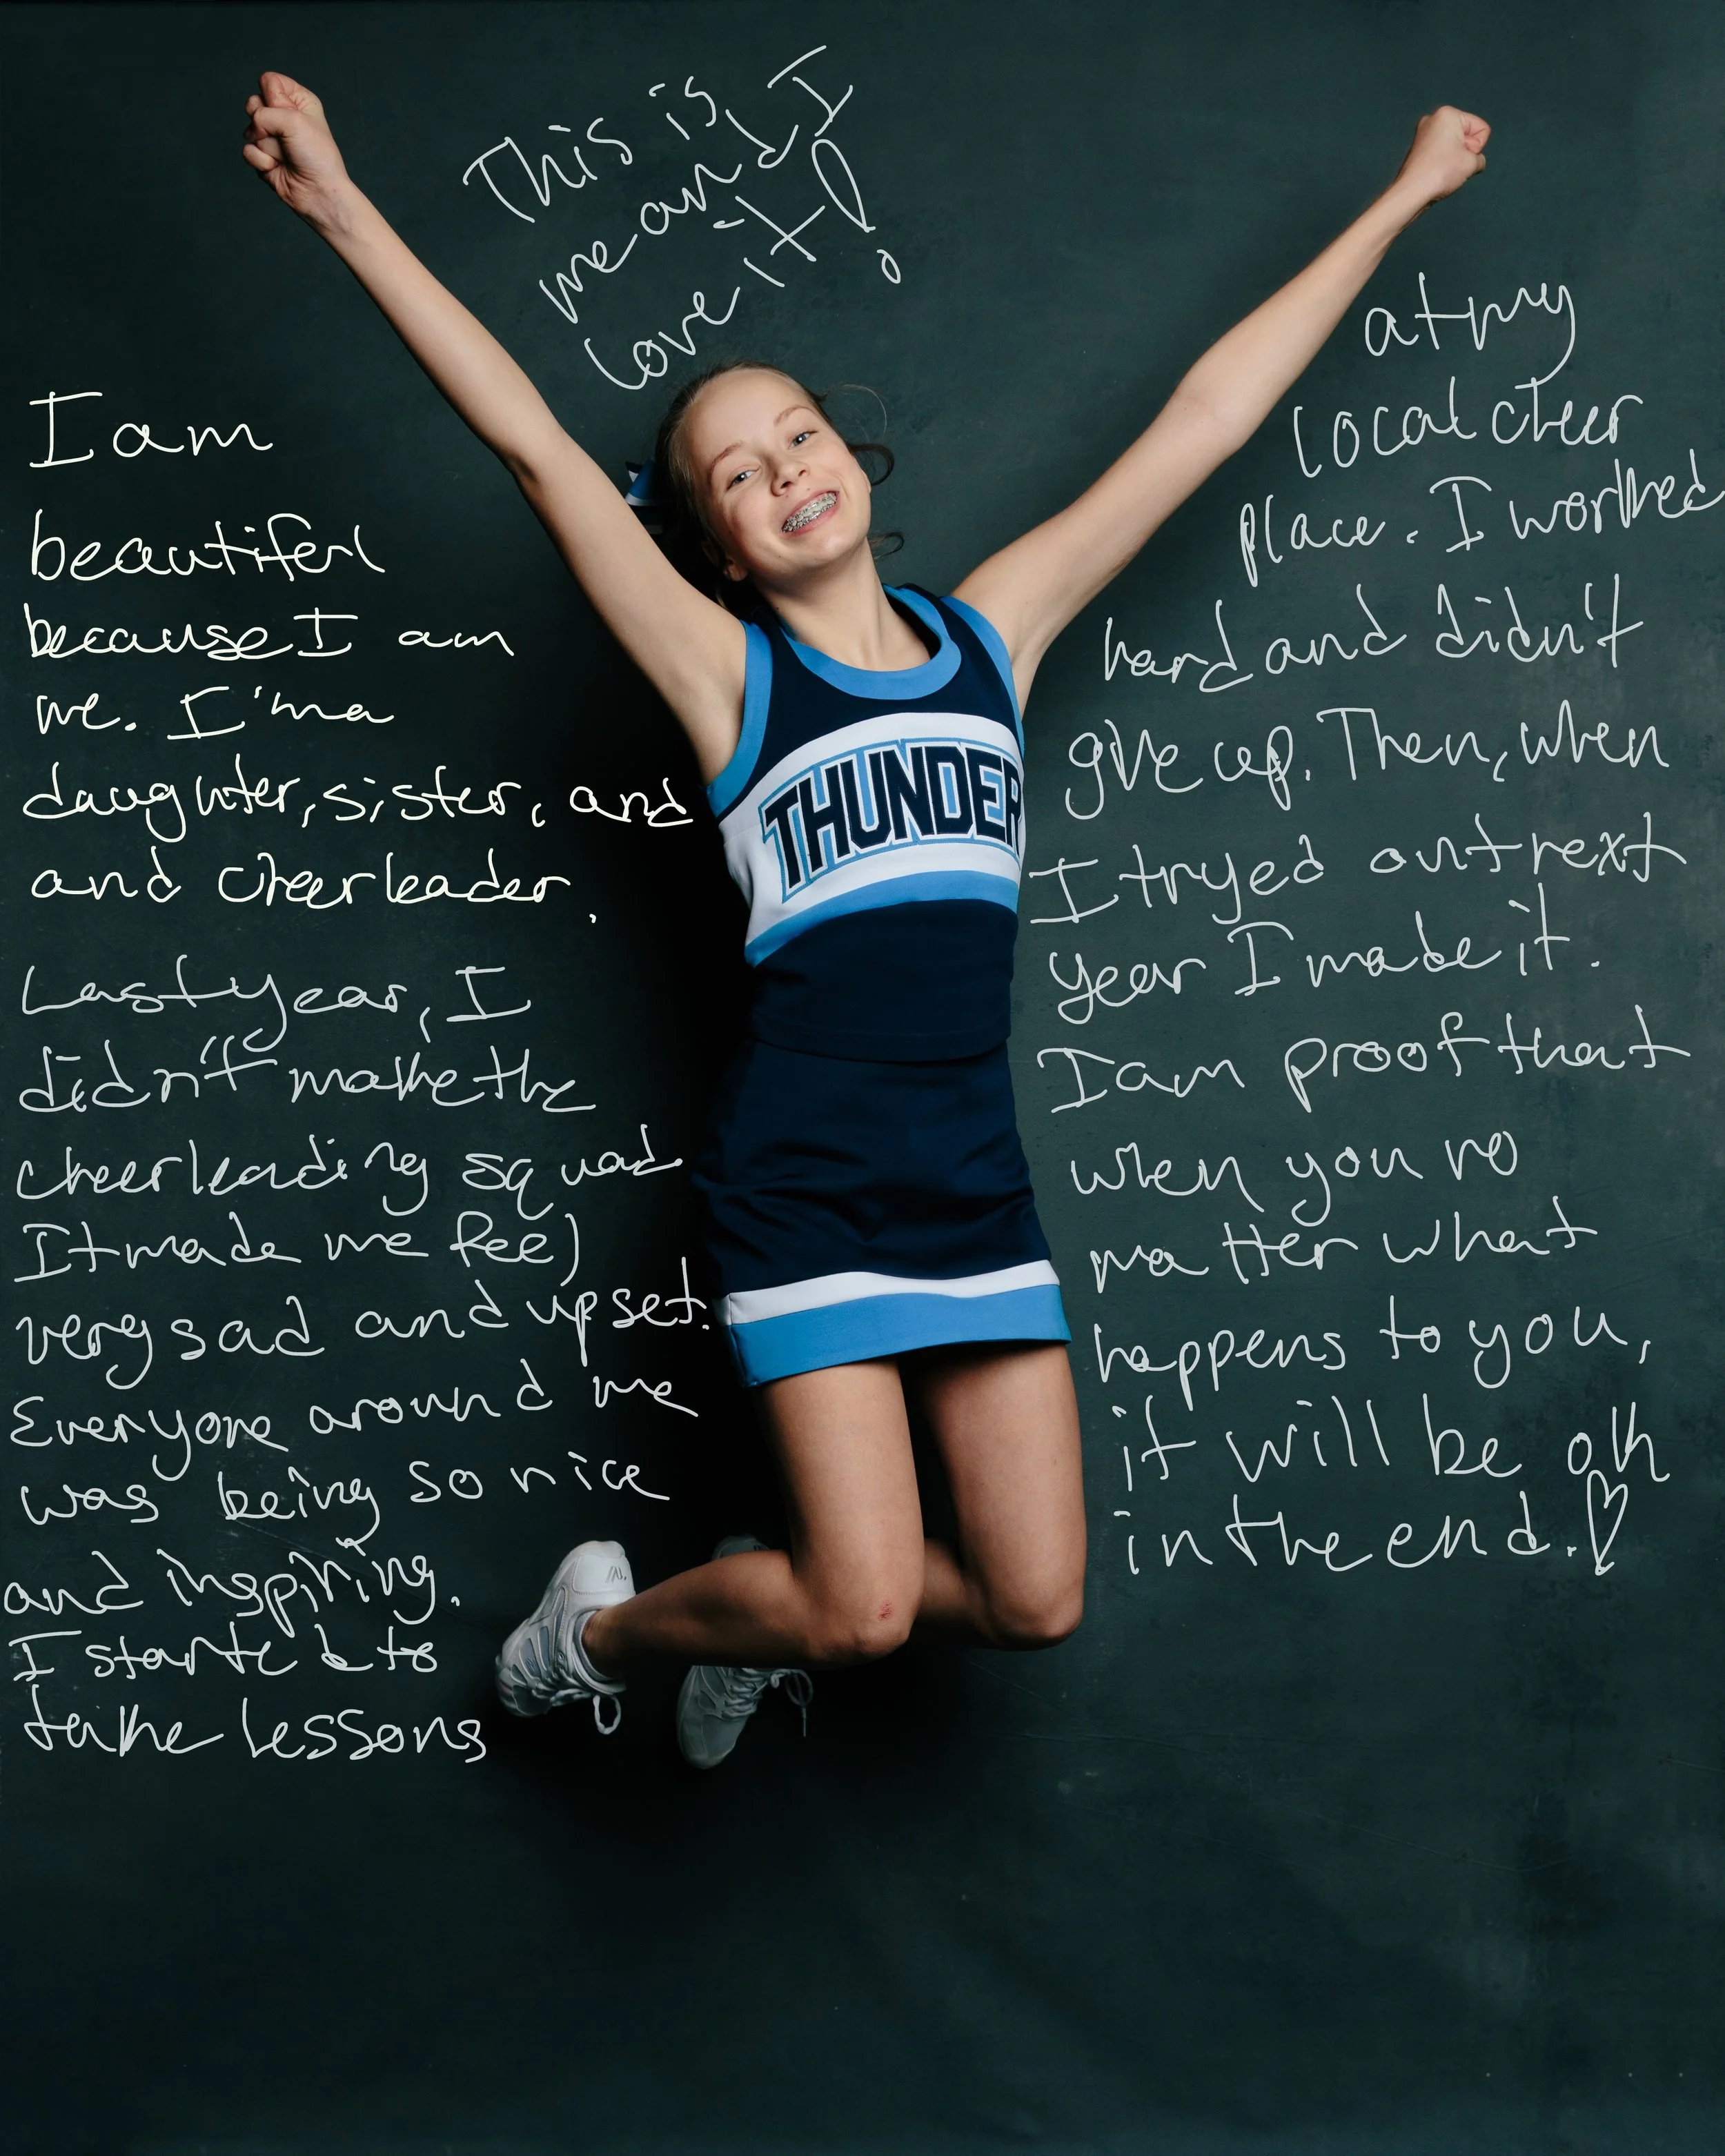 This is
me and I
love it!
I am
beautiferl
because I am
me. I'm a
daughter, sister, and
and cheerleader.
Last year, I
didn't make the
cheerleading squad
It made me feel
very sad and upset.
Everyone around me
was being so nice
and inspiring.
I started to
take lessons
at my
local cheer
place. I worked
hard and didn't
give up. Then, when
I tryed out next
year I made it.
I am proof that
when you no
matter what
happens to you,
it will be ok
in the end.♡
THUNDER